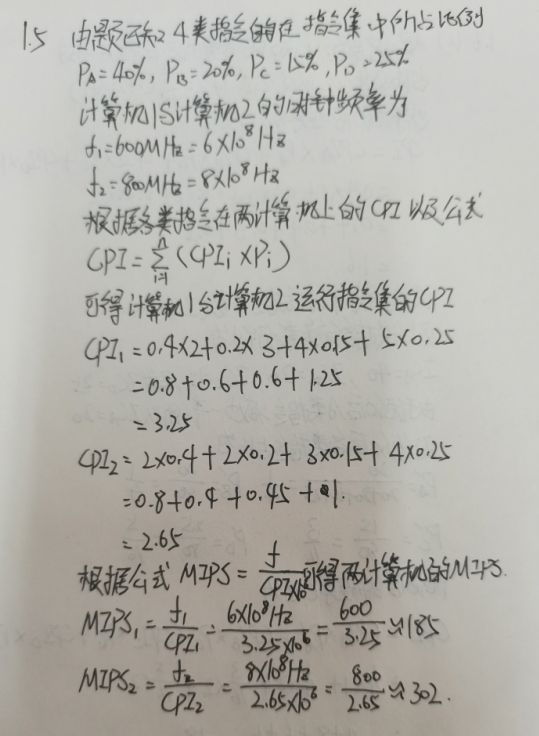 1.5 由题已知 4类指令的在指令集中所占比例
P_A=40%, P_B=20%, P_C=15%, P_D=25%
计算机1与计算机2的时钟频率为
f₁=600MHz=6×10⁸Hz
f₂=800MHz=8×10⁸Hz
根据各类指令在两计算机上的CPI以及公式
CPI=∑ⁿᵢ₌₁(CPIᵢ×Pᵢ)
可得计算机1与计算机2运行指令集的CPI
CPI₁=0.4×2+0.2×3+4×0.15+5×0.25
=0.8+0.6+0.6+1.25
=3.25
CPI₂=2×0.4+2×0.2+3×0.15+4×0.25
=0.8+0.4+0.45+1.
=2.65
根据公式 MIPS=f/CPI×10⁶ 可得两计算机的MIPS.
MIPS₁=f₁/CPI₁=6×10⁸Hz/3.25×10⁶=600/3.25≈185
MIPS₂=f₂/CPI₂=8×10⁸Hz/2.65×10⁶=800/2.65≈302.